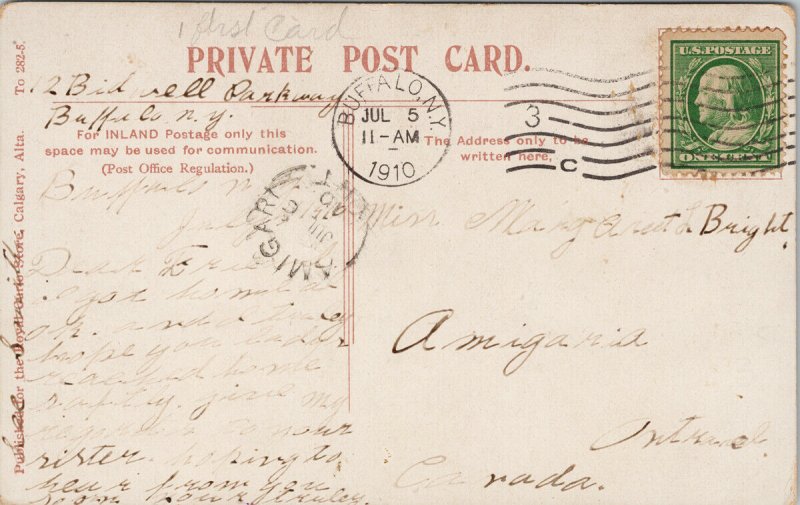 1 first Card
PRIVATE POST CARD.
12 Bidwell Parkway
Buffalo, n.y.
For INLAND Postage only this
space may be used for communication.
(Post Office Regulation.)
The Address only to be
written here.
BUFFALO, N.Y.
JUL 5
11-AM
1910
3
C
U.S. POSTAGE
ONE CENT
Published for the Boyd Card Store, Calgary, Alta. To 282-5.
AMIGARI
ONT
JUL
10
Buffalo n.y.
July
Dear Friend
I got home
O.K. and
hope you
reached home
safty. give my
regards to your
sister. hoping to
hear from you
soon. yours truley
Miss Margaret Bright
Amigaria
Ontario
Canada.